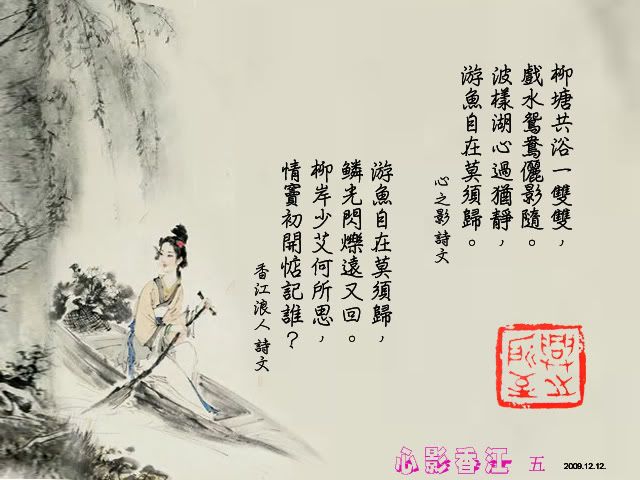 柳塘共浴一雙雙，
戲水鴛鴦儷影隨。
波樣湖心過猶靜，
游魚自在莫須歸。
心之影詩文
游魚自在莫須歸，
鱗光閃爍遠又回。
柳岸少艾何所思，
情竇初開惦記誰？
香江浪人詩文
心影香江 五 2009.12.12.